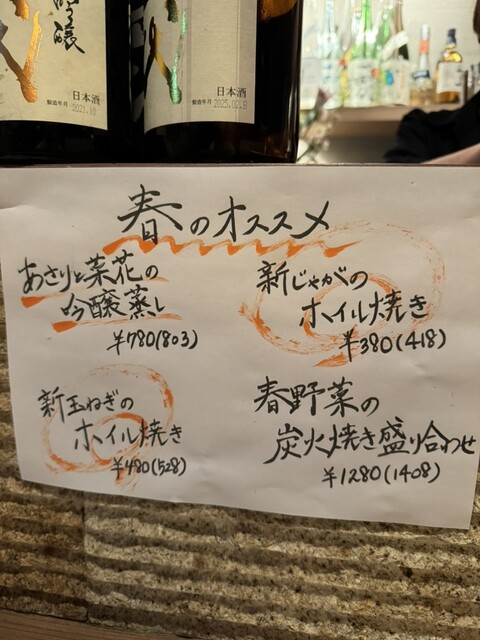 吟醸
日本酒
製造年月
日本酒
製造年月 2025.02.8
春のオススメ
あさりと菜花の
吟醸蒸し
¥780(803)
新じゃがの
ホイル焼き
¥380(418)
新玉ねぎの
ホイル焼き
¥480(528)
春野菜の
炭火焼き盛り合わせ
¥1280(1408)